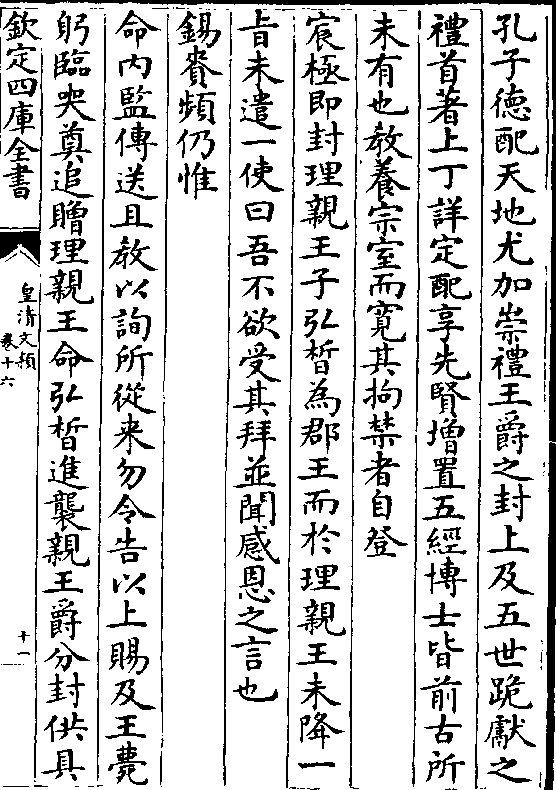 孔子德配天地尤加崇禮王爵之封上及五世跪獻之
禮首著上丁詳定配享先賢增置五經博士皆前古所
未有也敎養宗室而寛其拘禁者自登
宸極即封理親王子弘晳為郡王而於理親王未降一
旨未遣一使曰吾不欲受其拜並聞感恩之言也
錫賚頻仍惟
命内監傳送且敎以詢所從来勿令告以上賜及王薨
躬臨哭奠追贈理親王命弘晳進襲親王爵分封供具
欽定四庫全書
皇清文頴
卷十六
十一